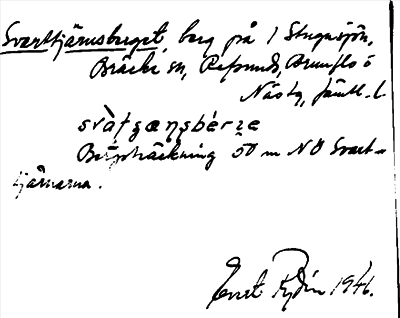 Svarttjärnsberget, berg på 1 Stugusjön,
Bräcke sn, Refsunds, Brunflo o
Näs tg, Jämtl. l.
svàt̨ʒænsbérʒe
Bergsträckning 50 m NO Svart-
tjärnarna.
Ernst Rydin 1946.